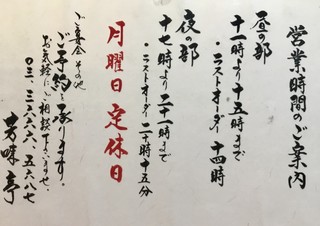 営業時間のご案内
昼の部
十一時より十五時まで
・ラストオーダー 十四時
夜の部
十七時より二十一時まで
・ラストオーダー 二十時十五分
月曜日定休日
ご宴会 その他
ご予約承ります。
お気軽にご相談下さいませ。
〇三.三八六六.五六八七
芳味亭